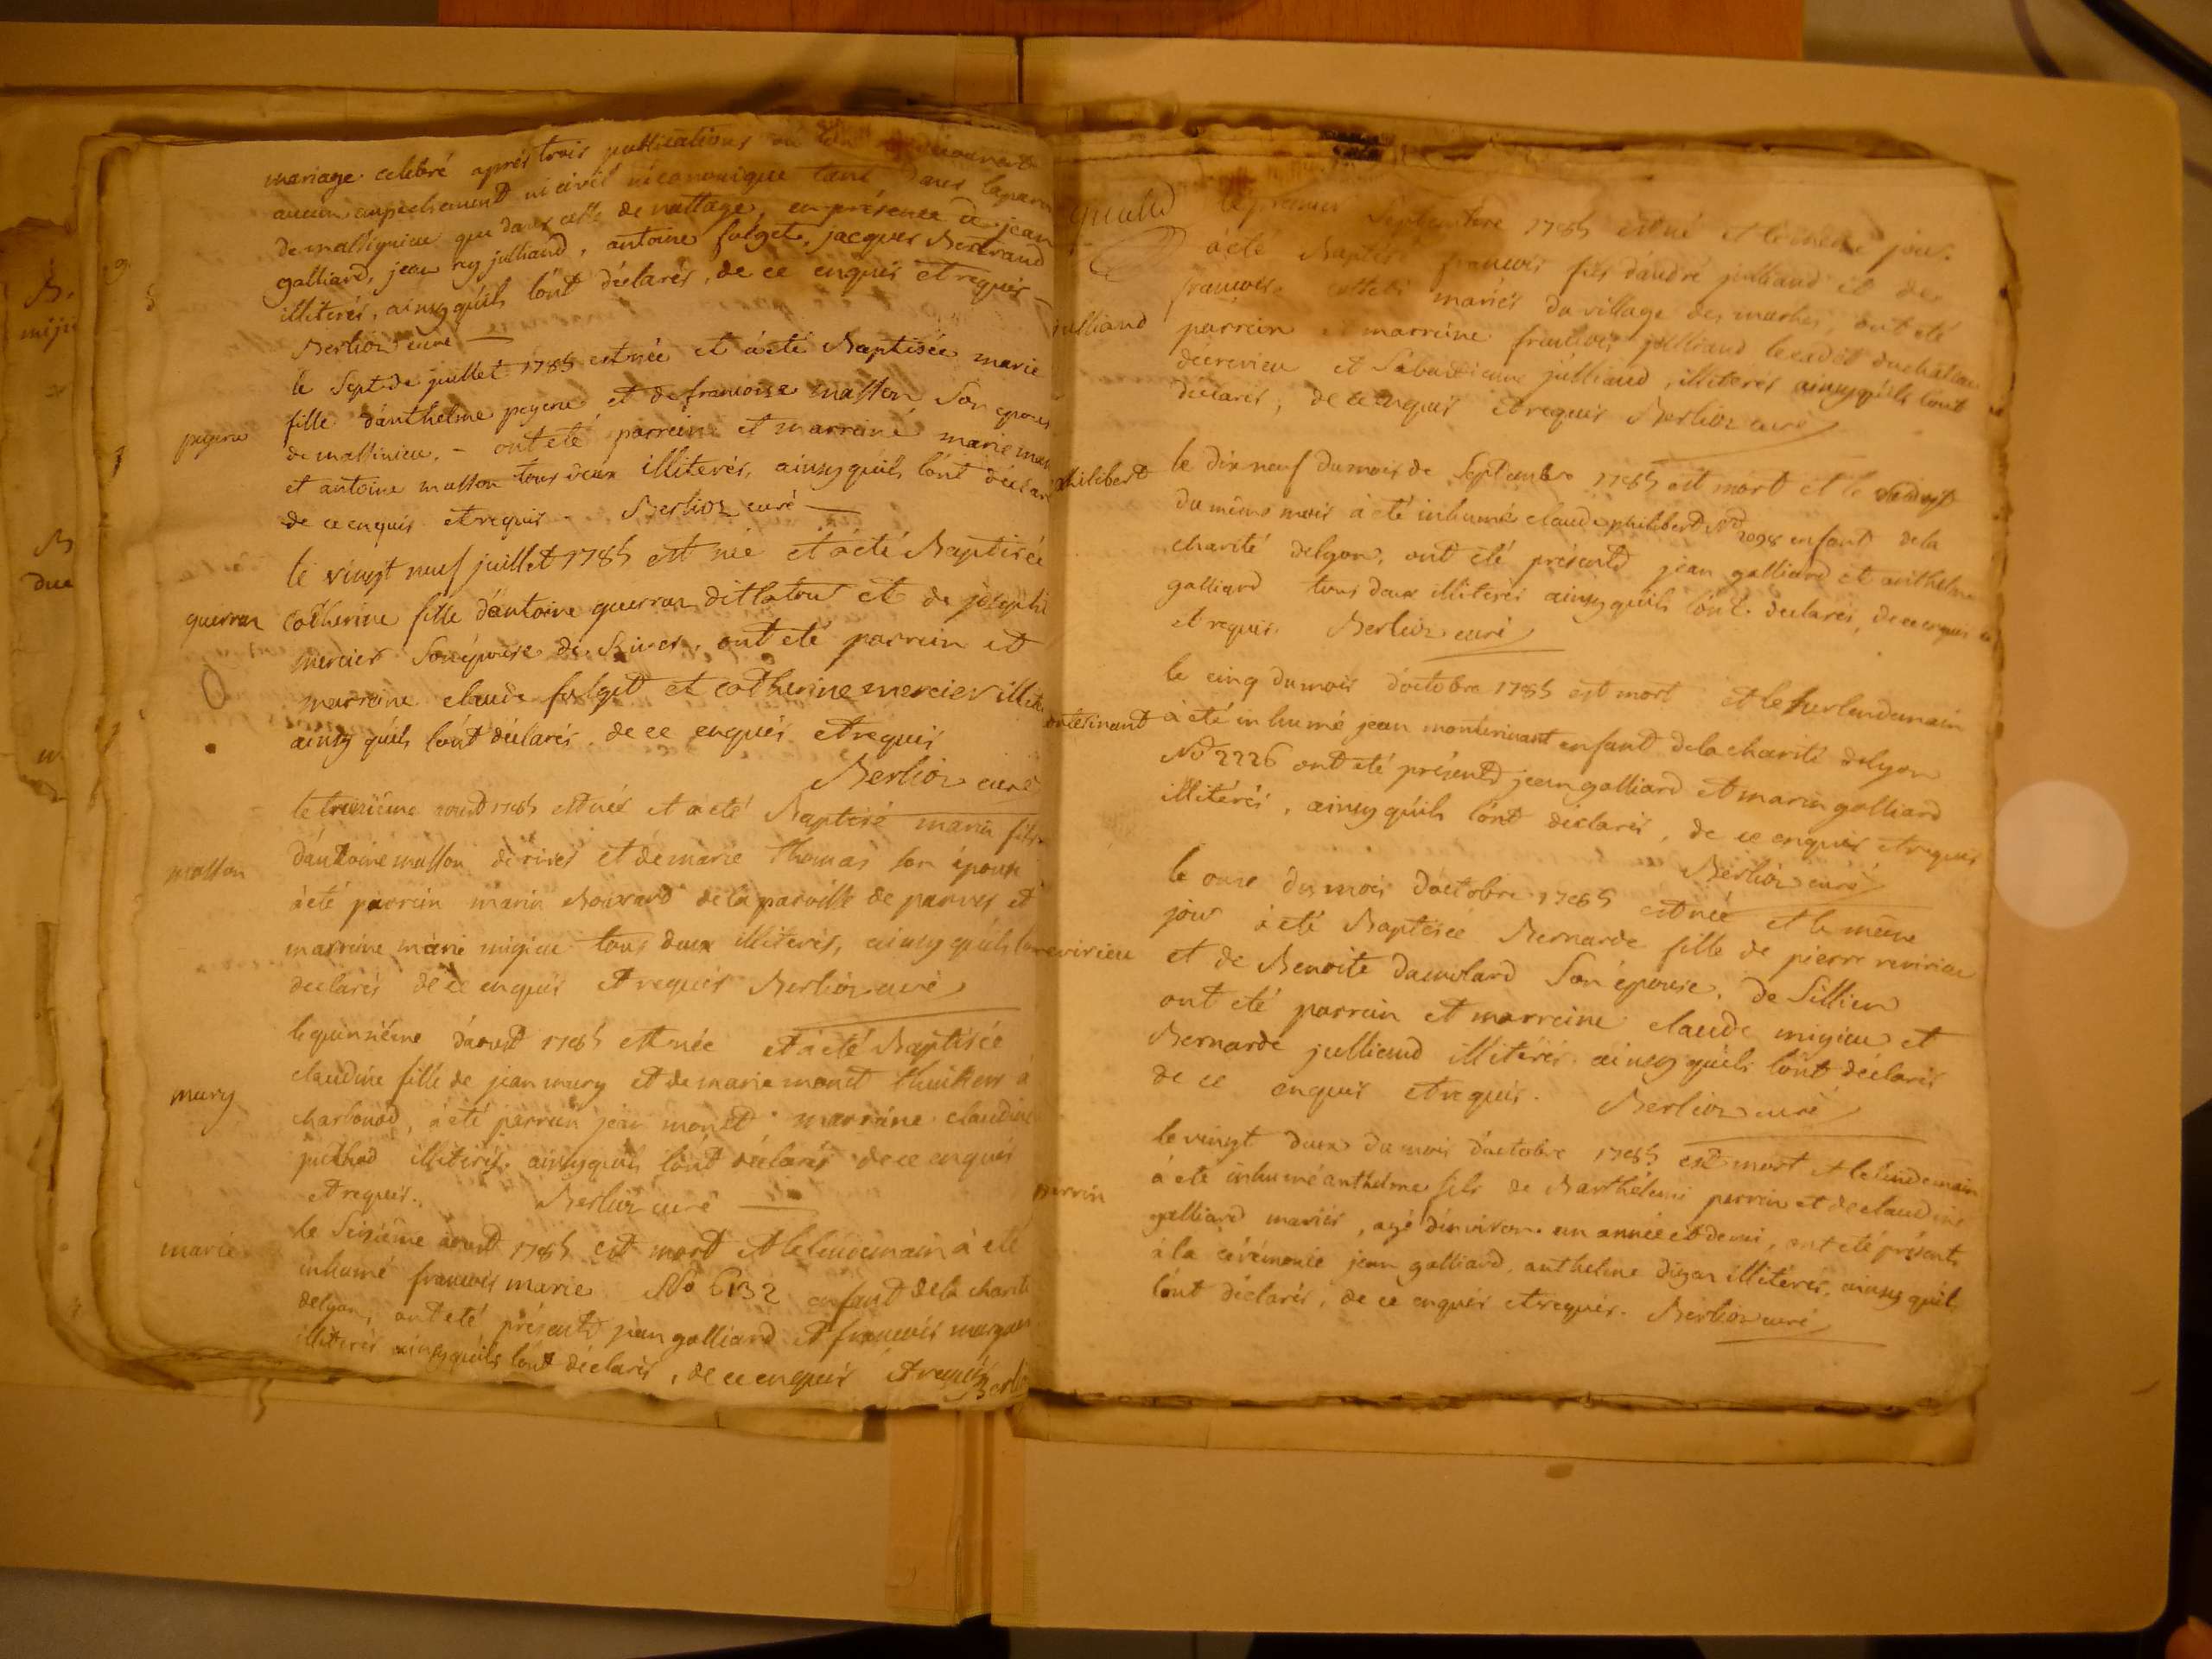 mariage celebré aprés trois publications
aucun empechement ni civil ni canonique tant dans la paroi
de massignieu que dans celle de nattage, en présence de jean
galliard, jean rey julliand, antoine falget, jacques Bertrand
illiterés, ainsy qu'ils l'ont déclarés, de ce enquis et requis
Berlioz curé
le Sept de juillet 1785 est née et à eté Baptisée marie
pegene
fille d'anthelme pegene et de francoise masson Son epouse
de massinieu. - ont eté parrein et marreine marie
et antoine masson tous deux illiterés, ainsy qu'ils l'ont déclar
de ce enquis et requis - Berlioz curé
le vingt neuf juillet 1785 est née et à eté Baptisée
guerraz
Catherine fille d'antoine guerraz dit latour et de josephe
mercier Son épouse de Rives, ont eté parrein et
marreine claude falget et catherine mercier illite
ainsy qu'ils l'ont déclarés de ce enquis et requis
Berlioz curé
le treizième aoust 1785 est nés et à eté Baptisé marin fils
masson
d'antoine masson de rives et de marie thomas son épouse
à eté parrein marin Bouvard de la paroisse de parves et
marreine marie migieu tous deux illiterés, ainsy qu'ils l'on
declarés de ce enquis et requis Berlioz curé
le quinzième d'aoust 1785 est née et à eté Baptisée
mury
claudine fille de jean mury et de marie monet
charbonod, à eté parrein jean monet marreine claudine
illiterés, ainsy qu'ils l'ont déclarés de ce enquis
et requis. Berlioz curé
marie
le Seizième aoust 1785 est mort et le lendemain à eté
inhumé francois marie No 6132 enfant de la charité
de lyon, ont eté présents jean galliard et francois
illiterés ainsy qu'ils l'ont déclarés, de ce enquis et requis Berlio
julliand
le premier Septembre 1785 est né et le même jour
à eté Baptisé francois fils d'andré julliand et de
francoise mariés du village des ont eté
parrein et marreine francois julliand le cadet
et julliand, illiterés ainsy qu'ils l'ont
déclarés, de ce enquis et requis Berlioz curé
philibert
le dix neuf du mois de Septembre 1785 est mort et le vingt
du même mois à eté inhumé claude philibert No 2098 enfant de la
charité de lyon, ont eté présents jean galliard et anthelme
galliard tous deux illiterés ainsy qu'ils l'ont declarés, de ce enquis
et requis. Berlioz curé
le cinq du mois d'octobre 1785 est mort et le surlendemain
ontérinant
à eté inhumé jean montérinant enfant de la charité de lyon
No 2226 ont eté présents jean galliard et marin galliard
illitérés, ainsy qu'ils l'ont déclarés, de ce enquis et requis
Berlioz curé
le onze du mois d'octobre 1785 est née et le même
jour à eté Baptisée Bernarde fille de pierre revirieu
revirieu
et de Benoite Son épouse, de Sillieu
ont eté parrein et marreine claude migieu et
Bernarde julliand illitérés ainsy qu'ils l'ont déclarés
de ce enquis et requis. Berlioz curé
le vingt deux du mois d'octobre 1785 est mort et le lendemain
perrin
à eté inhumé anthelme fils de Barthélemi perrin et de claudine
galliard mariés, agé d'environ un année et demi, ont eté présents
à la cérémonie jean galliard, anthelme illitérés, ainsy qu'il
l'ont déclarés, de ce enquis et requis. Berlioz curé